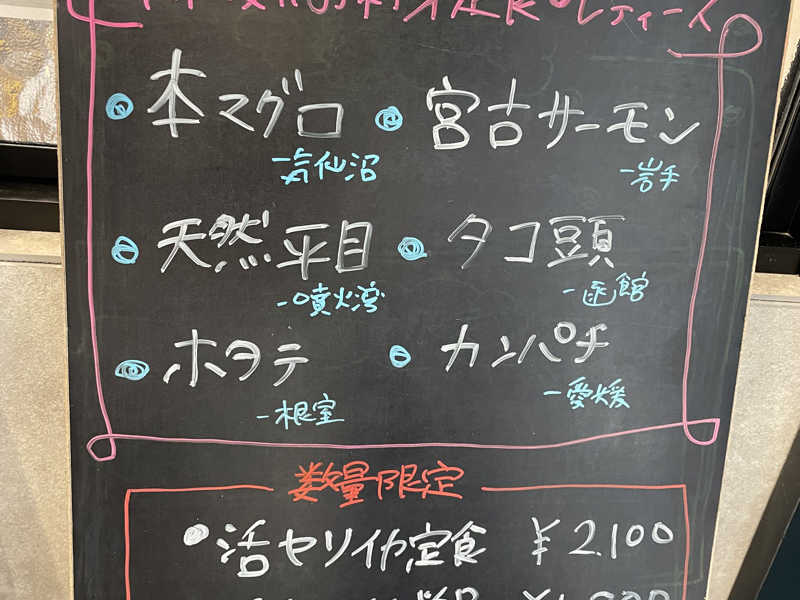 本マグロ
-気仙沼
宮古サーモン
-岩手
天然平目
-噴火湾
タコ頭
-函館
ホタテ
-根室
カンパチ
-愛媛
数量限定
活ヤリイカ定食 ¥2,100